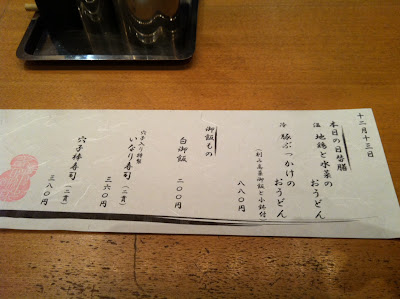 十二月十三日
本日の日替膳
温 地鶏と水菜の
おうどん
冷 豚ぶっかけの
おうどん
八八〇円
御飯もの
白御飯
二〇〇円
穴子入り特製
いなり寿司(二貫)
三六〇円
穴子棒寿司(二貫)
三八〇円